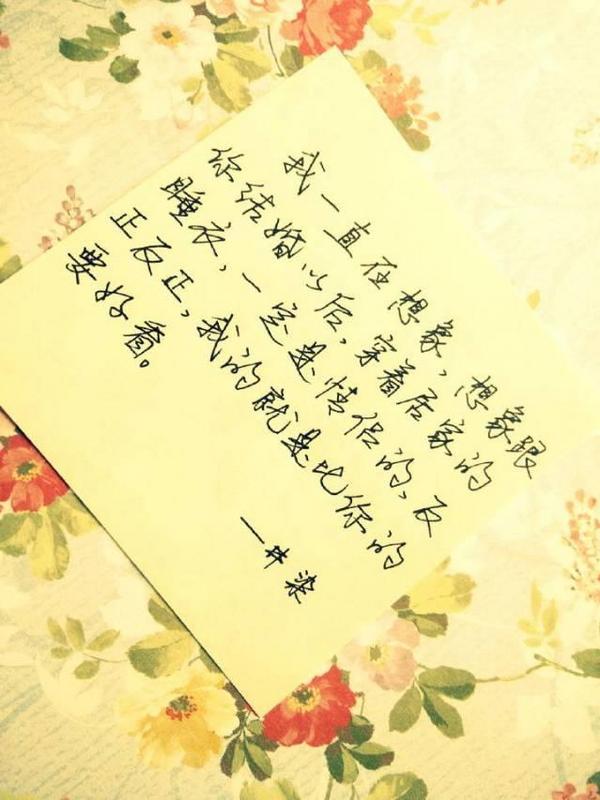 我一直在想象，想象跟
你结婚以后，穿着居家的
睡衣，一定是情侣的，反
正反正，我的就是比你的
要好看。
—井染